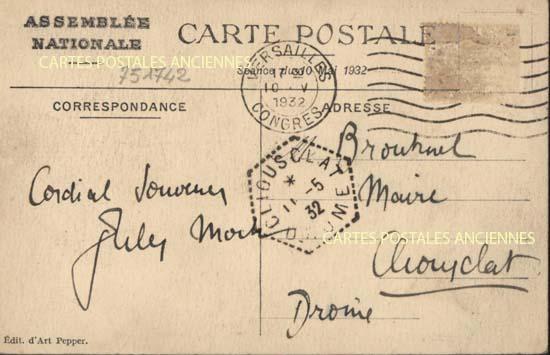 ASSEMBLÉE
NATIONALE
CARTE POSTALE
CARTES POSTALES ANCIENNES
751742
Séance du 10 Mai 1932
VERSAILLES
10 - V
1932
CONGRES
CORRESPONDANCE
ADRESSE
CLIOUSCLAT
*
11 - 5
32
DROME
Cordial Souvenir
Jules Moch
Maire
CARTES POSTALES ANCIENNES
Cliousclat
Drome
Édit. d'Art Pepper.